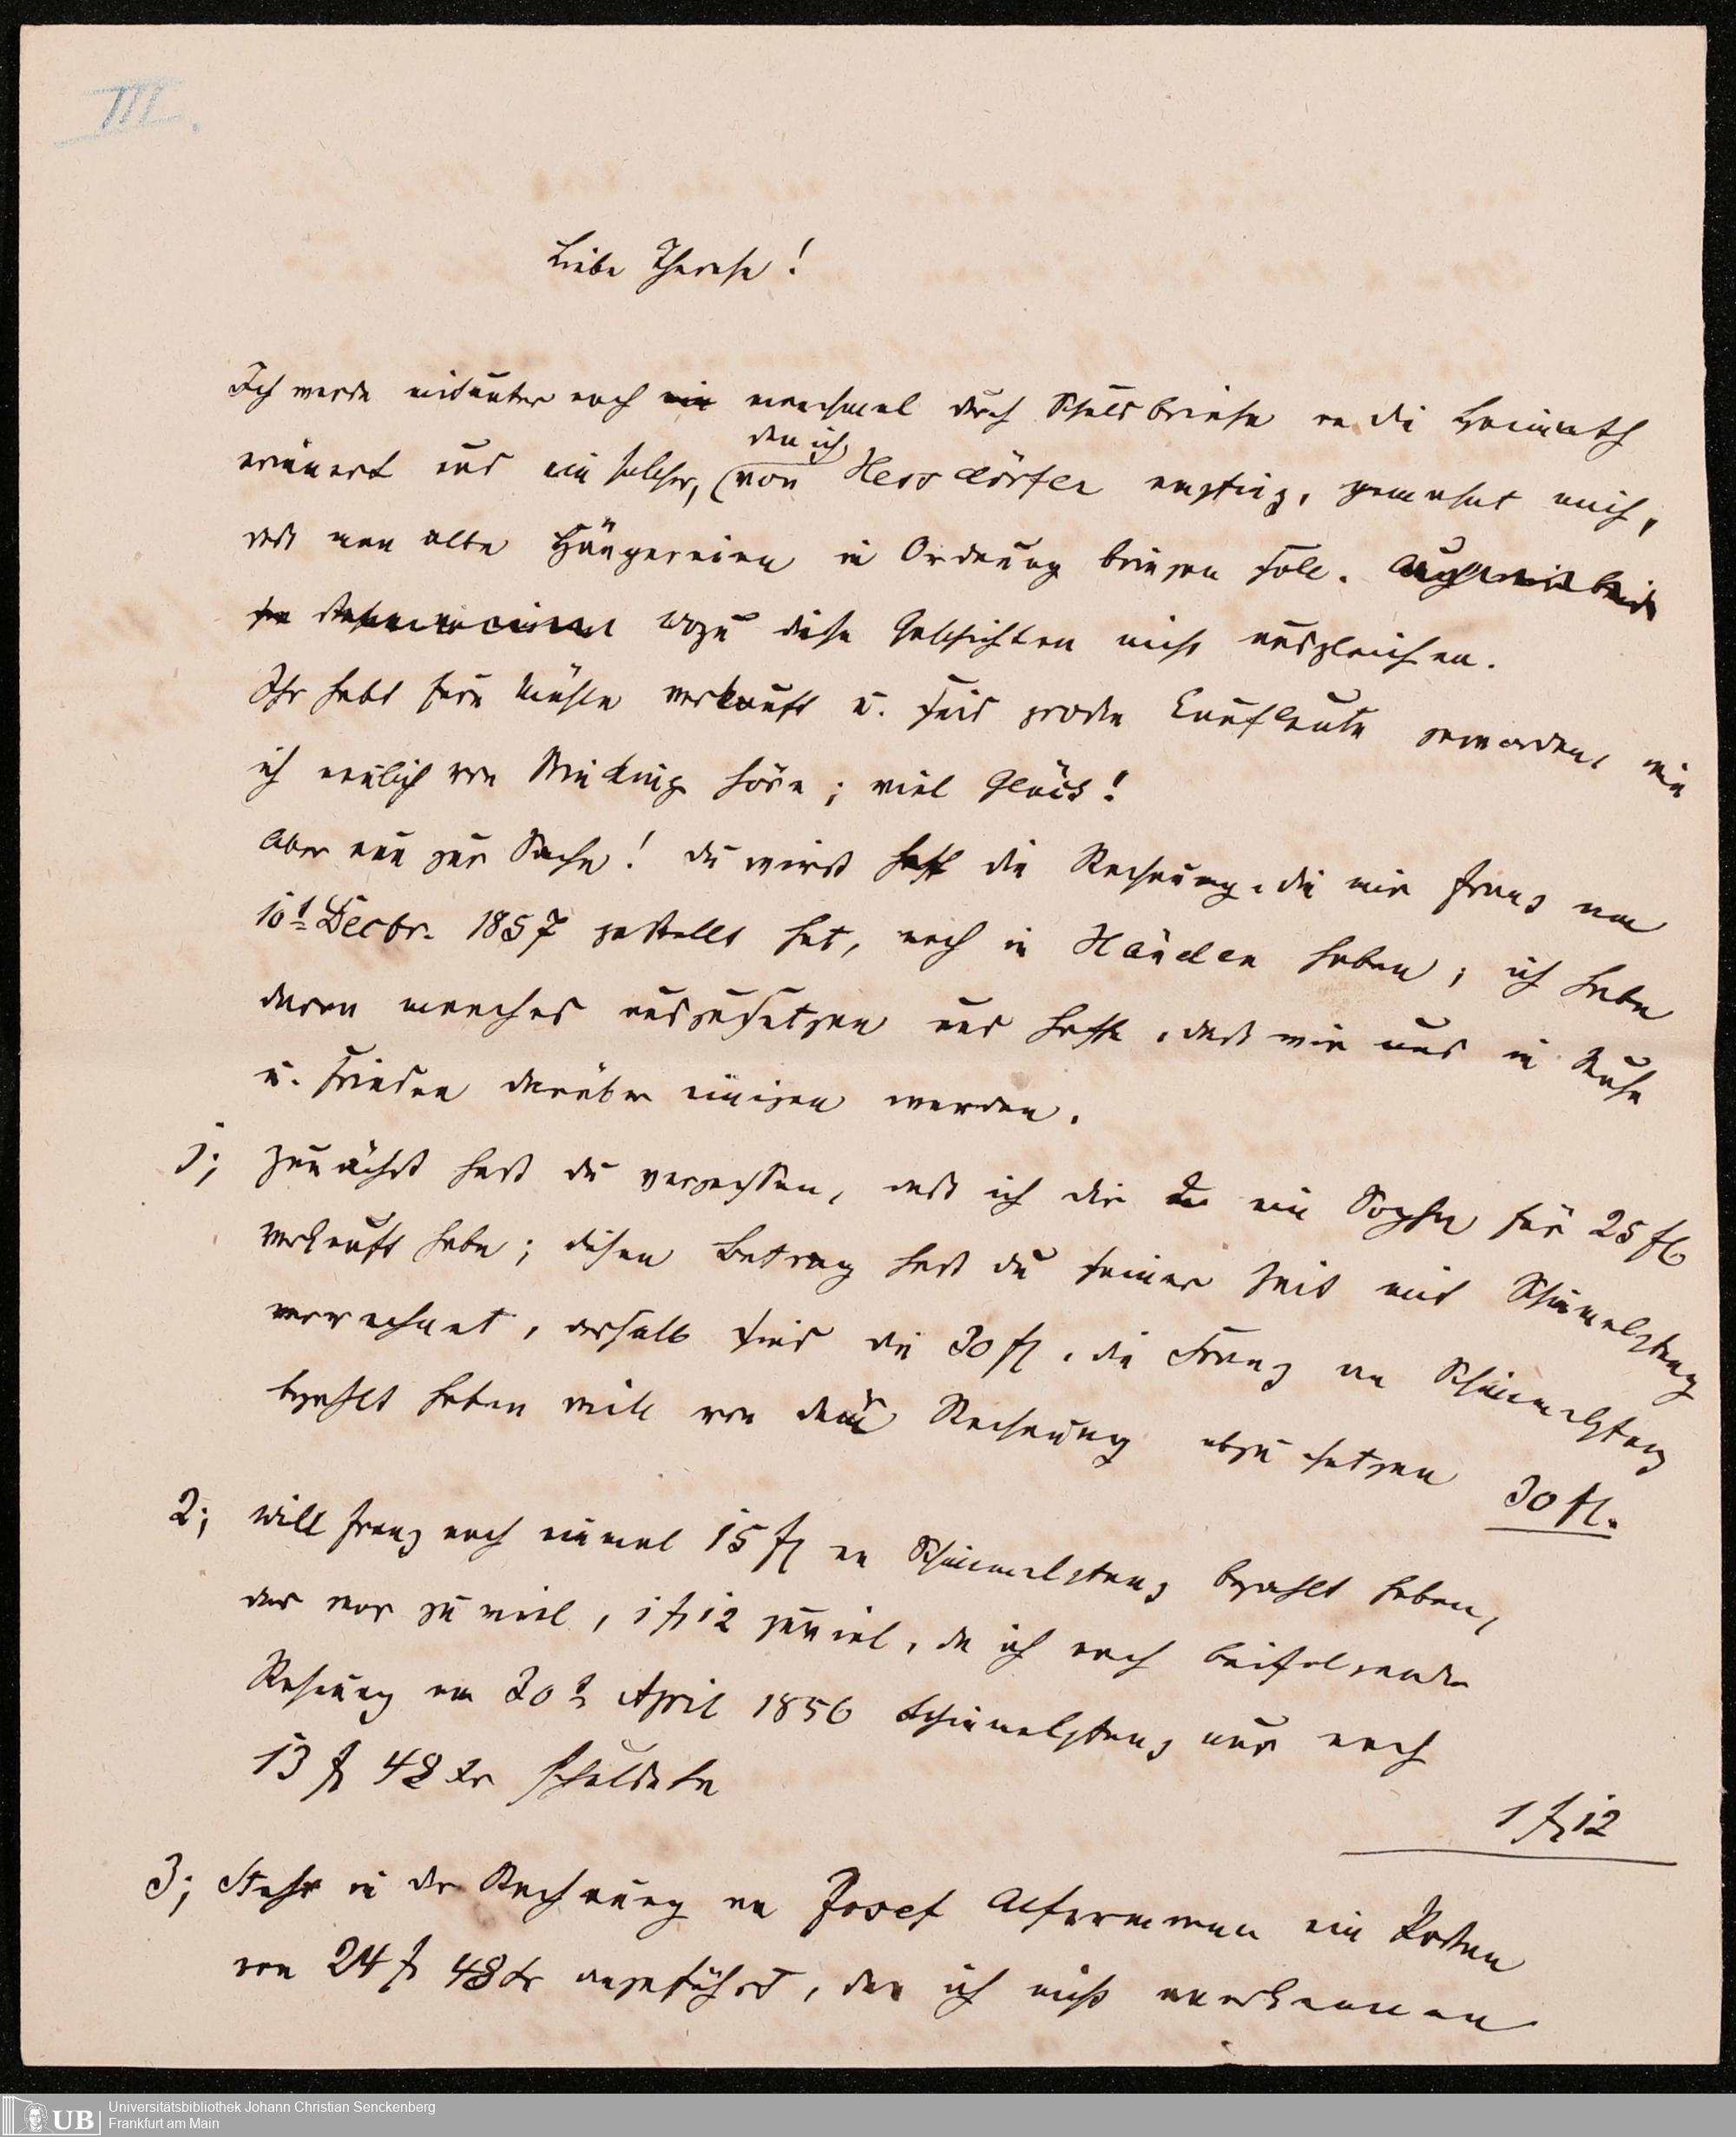 III.
Liebe Therese!
Ich werde mitunter noch manchmal durch Schuldbriefe an die Heimath
den ich
erinnert und ein solcher, (von Hessdörfer empfing, gemahnt mich,
daß man alte Hängereien in Ordnung bringen soll.
wozu diese Geschichten nicht ausgleichen.
Ihr habt Eure Mühle verkauft u. seid große Kaufleute geworden, wie
ich neulich von höre; viel Glück!
Aber nun zur Sache! Du wirst die Rechnung, die mir Franz am
10t Decbr. 1857 gestellt hat, noch in Händen haben; ich habe
daran manches auszusetzen und hoffe, daß wir uns in Ruhe
u. Frieden darüber einigen werden.
1; Zunächst hast du vergessen, daß ich dir ein Sopha für 25 fl
verkauft habe; diesen Betrag hast du seiner Zeit mit Schimmelpfeng
verrechnet, deshalb sind die 30 fl, die Franz an Schimmelpfeng
bezahlt haben will von der Rechnung abzusetzen
30 fl.
2; will Franz noch einmal 15 fl an Schimmelpfeng bezahlt haben,
das war zu viel, 1 fl 12 zuviel, da ich nach beifolgender
Rechnung am 20t April 1856 Schimmelpfeng nur noch
13 fl 48 xr schuldete
1 fl 12
3; Steht in der Rechnung an Josef ein Posten
von 24 fl 48 xr angeführt, den ich nicht anerkennen
UB
Universitätsbibliothek Johann Christian Senckenberg
Frankfurt am Main